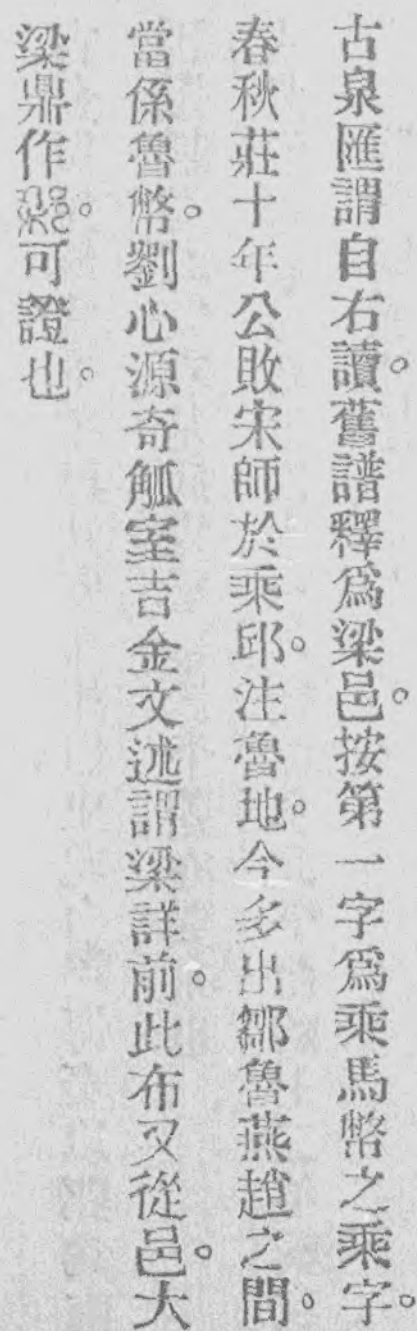 古泉匯謂自右讀。舊譜釋爲梁邑。按第一字爲乘馬幣之乘字。
春秋莊十年公敗宋師於乘邱。注魯地。今多出鄒魯燕趙之間。
當係魯幣。劉心源奇觚室吉金文述謂梁詳前。此布又從邑。大
梁鼎作。可證也。